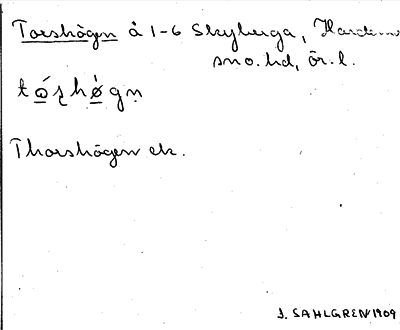 Torshögen å 1-6 Skyberga, Hardemo
sn o. hd, ör. l.
tǫ́ʂhø̀gn̥
Thorshögen ek.
J. SAHLGREN 1909